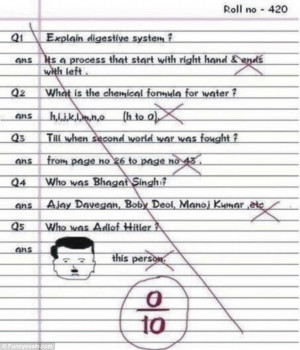 Roll no - 420
Q1 Explain digestive system ?
ans Its a process that start with right hand & ends
with left .
Q2 What is the chemical formula for water ?
ans h,i,j,k,l,m,n,o (h to o)
Q3 Till when second world war was fought ?
ans from page no 26 to page no 43.
Q4 Who was Bhagat Singh ?
ans Ajay Davegan, Boby Deol, Manoj Kumar ,etc
Q5 Who was Adlof Hitler ?
ans this person.
0
10